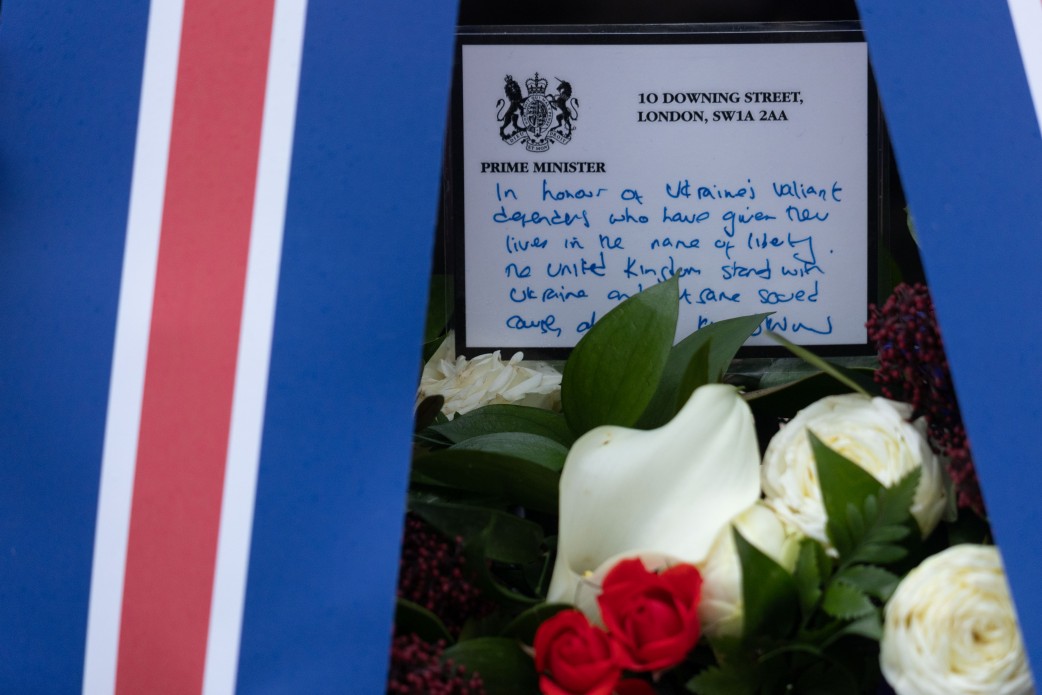 10 DOWNING STREET,
LONDON, SW1A 2AA
PRIME MINISTER
In honour of Ukraine's valiant
defenders who have given their
lives in the name of liberty.
The United Kingdom stand with
Ukraine and same sacred
cause,